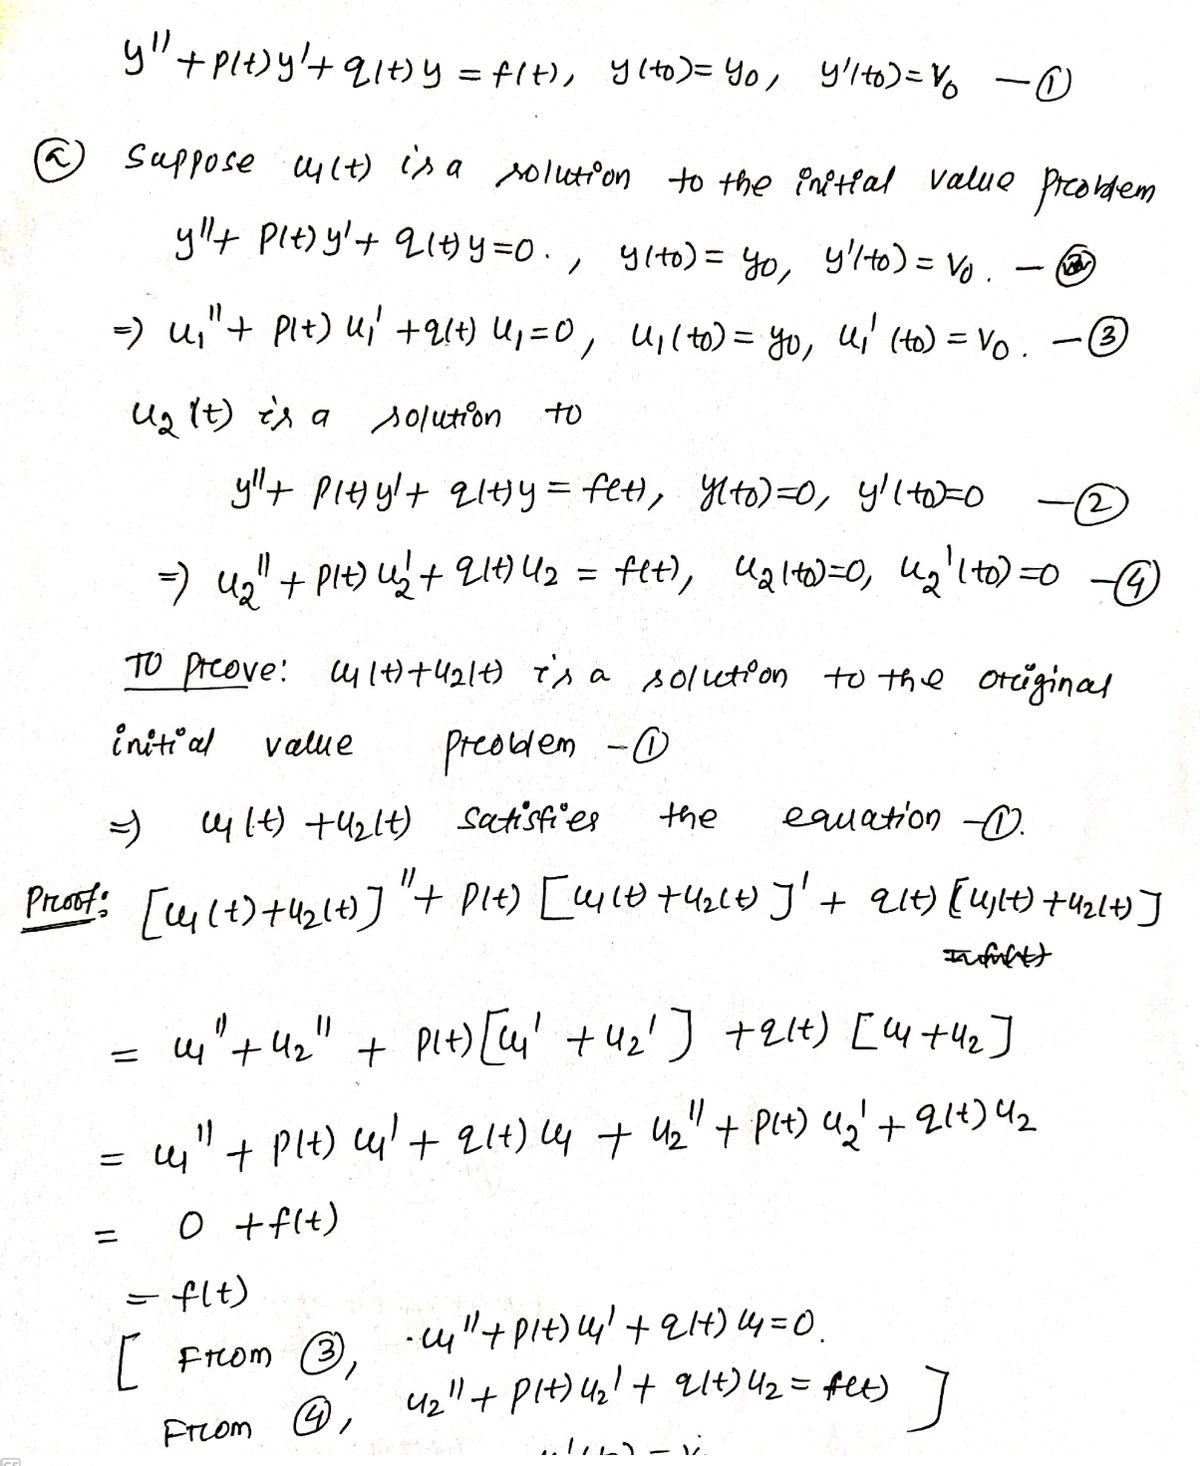 y'' + p(t)y' + q(t)y = f(t), y(t0) = y0, y'(t0) = V0 — ①
ⓐ Suppose u1(t) is a solution to the initial value problem
y'' + p(t)y' + q(t)y = 0 . , y(t0) = y0, y'(t0) = V0 . —
⇒ u1'' + p(t) u1' + q(t) u1 = 0, u1(t0) = y0, u1'(t0) = V0 . — ③
u2(t) is a solution to
y'' + p(t)y' + q(t)y = f(t), y(t0)=0, y'(t0)=0 — ②
⇒ u2'' + p(t) u2' + q(t) u2 = f(t), u2(t0)=0, u2'(t0)=0 — ④
To prove: u1(t)+u2(t) is a solution to the original
initial value problem - ①
⇒ u1(t) + u2(t) satisfies the equation - ①.
Proof: [u1(t)+u2(t)]'' + p(t) [u1(t)+u2(t)]' + q(t) [u1(t)+u2(t)]
= u1'' + u2'' + p(t)[u1' + u2'] + q(t) [u1+u2]
= u1'' + p(t) u1' + q(t) u1 + u2'' + p(t) u2' + q(t) u2
= 0 + f(t)
= f(t)
[ From ③, u1'' + p(t) u1' + q(t) u1 = 0.
From ④, u2'' + p(t) u2' + q(t) u2 = f(t) ]